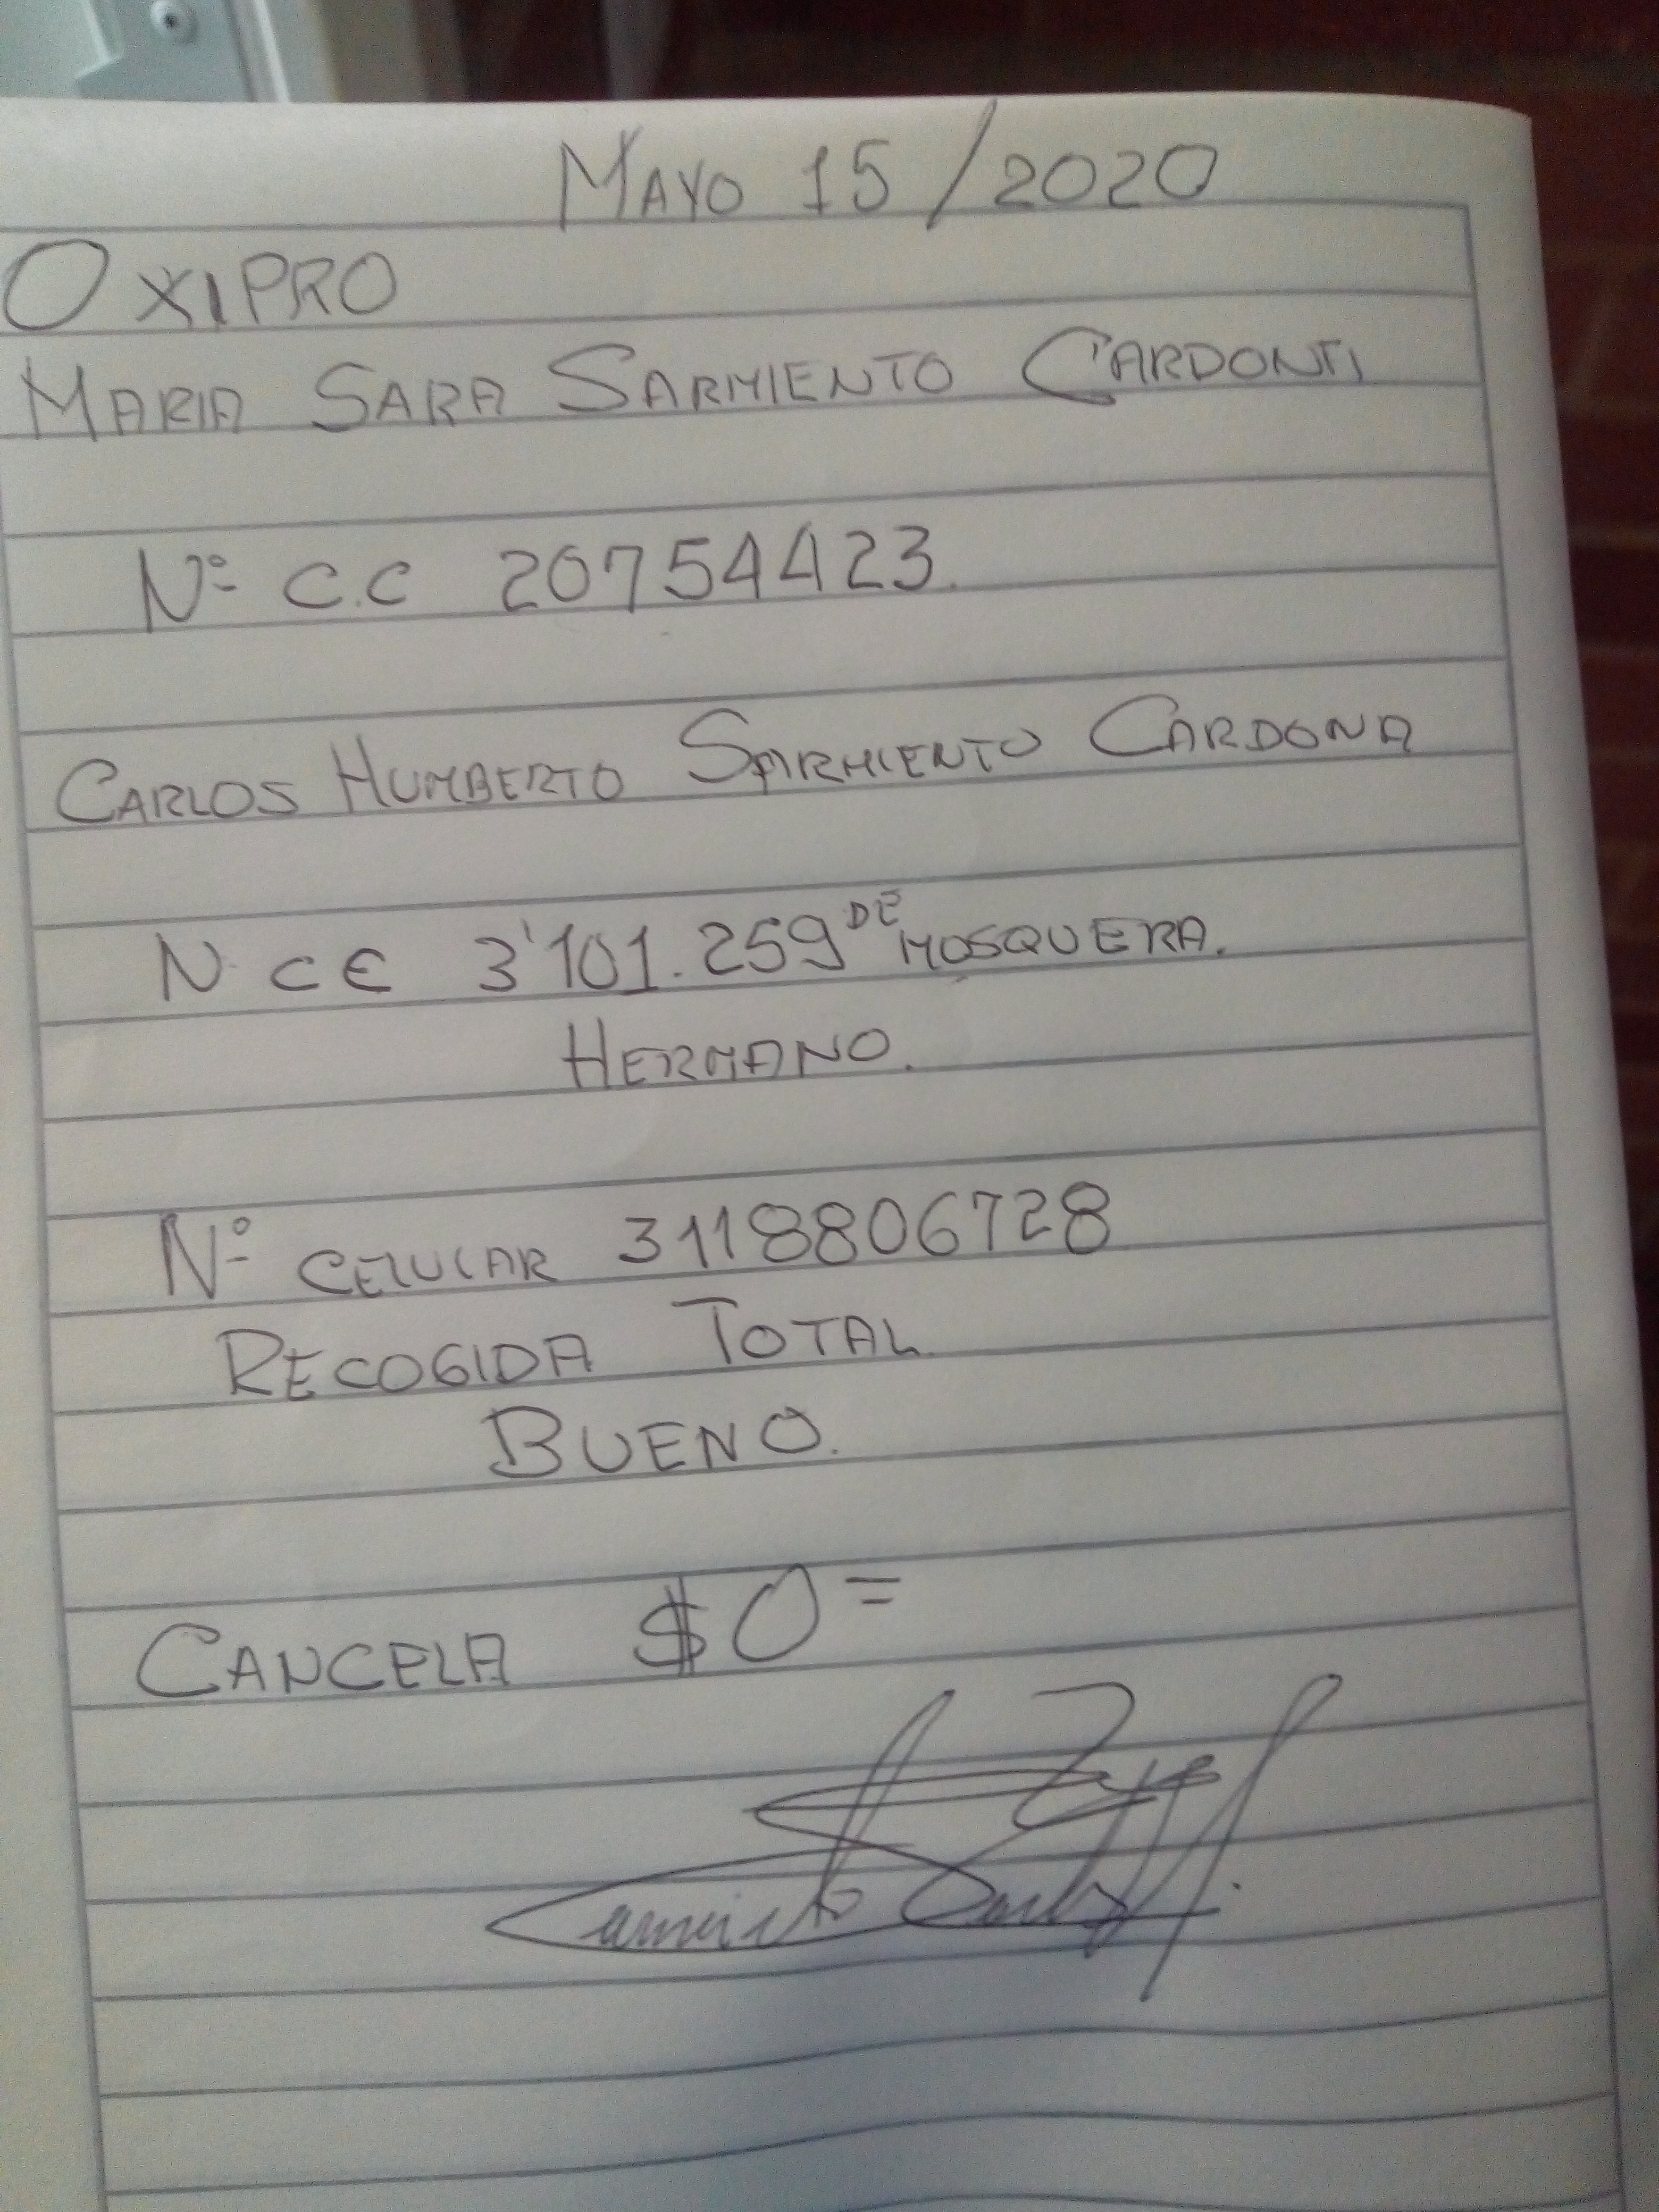 MAYO 15/2020
OXIPRO
MARIA SARA SARMIENTO CARDONTI
Nº C.C 20754423.
CARLOS HUMBERTO SARMIENTO CARDONA
N. CE 3'101.259 DE MOSQUERA.
HERMANO.
Nº CELULAR 3118806728
RECOGIDA TOTAL
BUENO.
CANCELA $0=